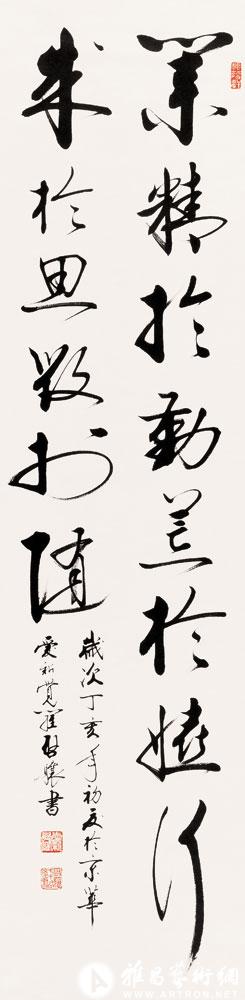 業精於勤荒於嬉行
成於思毀於隨
歲次丁亥年初夏於京華
愛新覺羅啟驤書
雅昌藝術網
WWW.ARTRON.NET